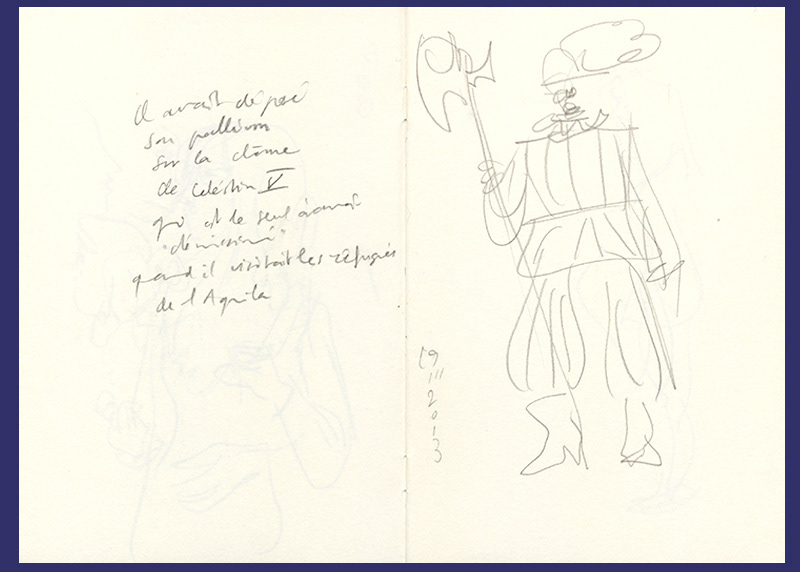 Il avait déposé
son pallium
sur la dôme
de Célestin V
qui est le seul à avoir
"démissionné"
quand il visitait les réfugiés
de l'Aquila
19
III
2
0
1
3